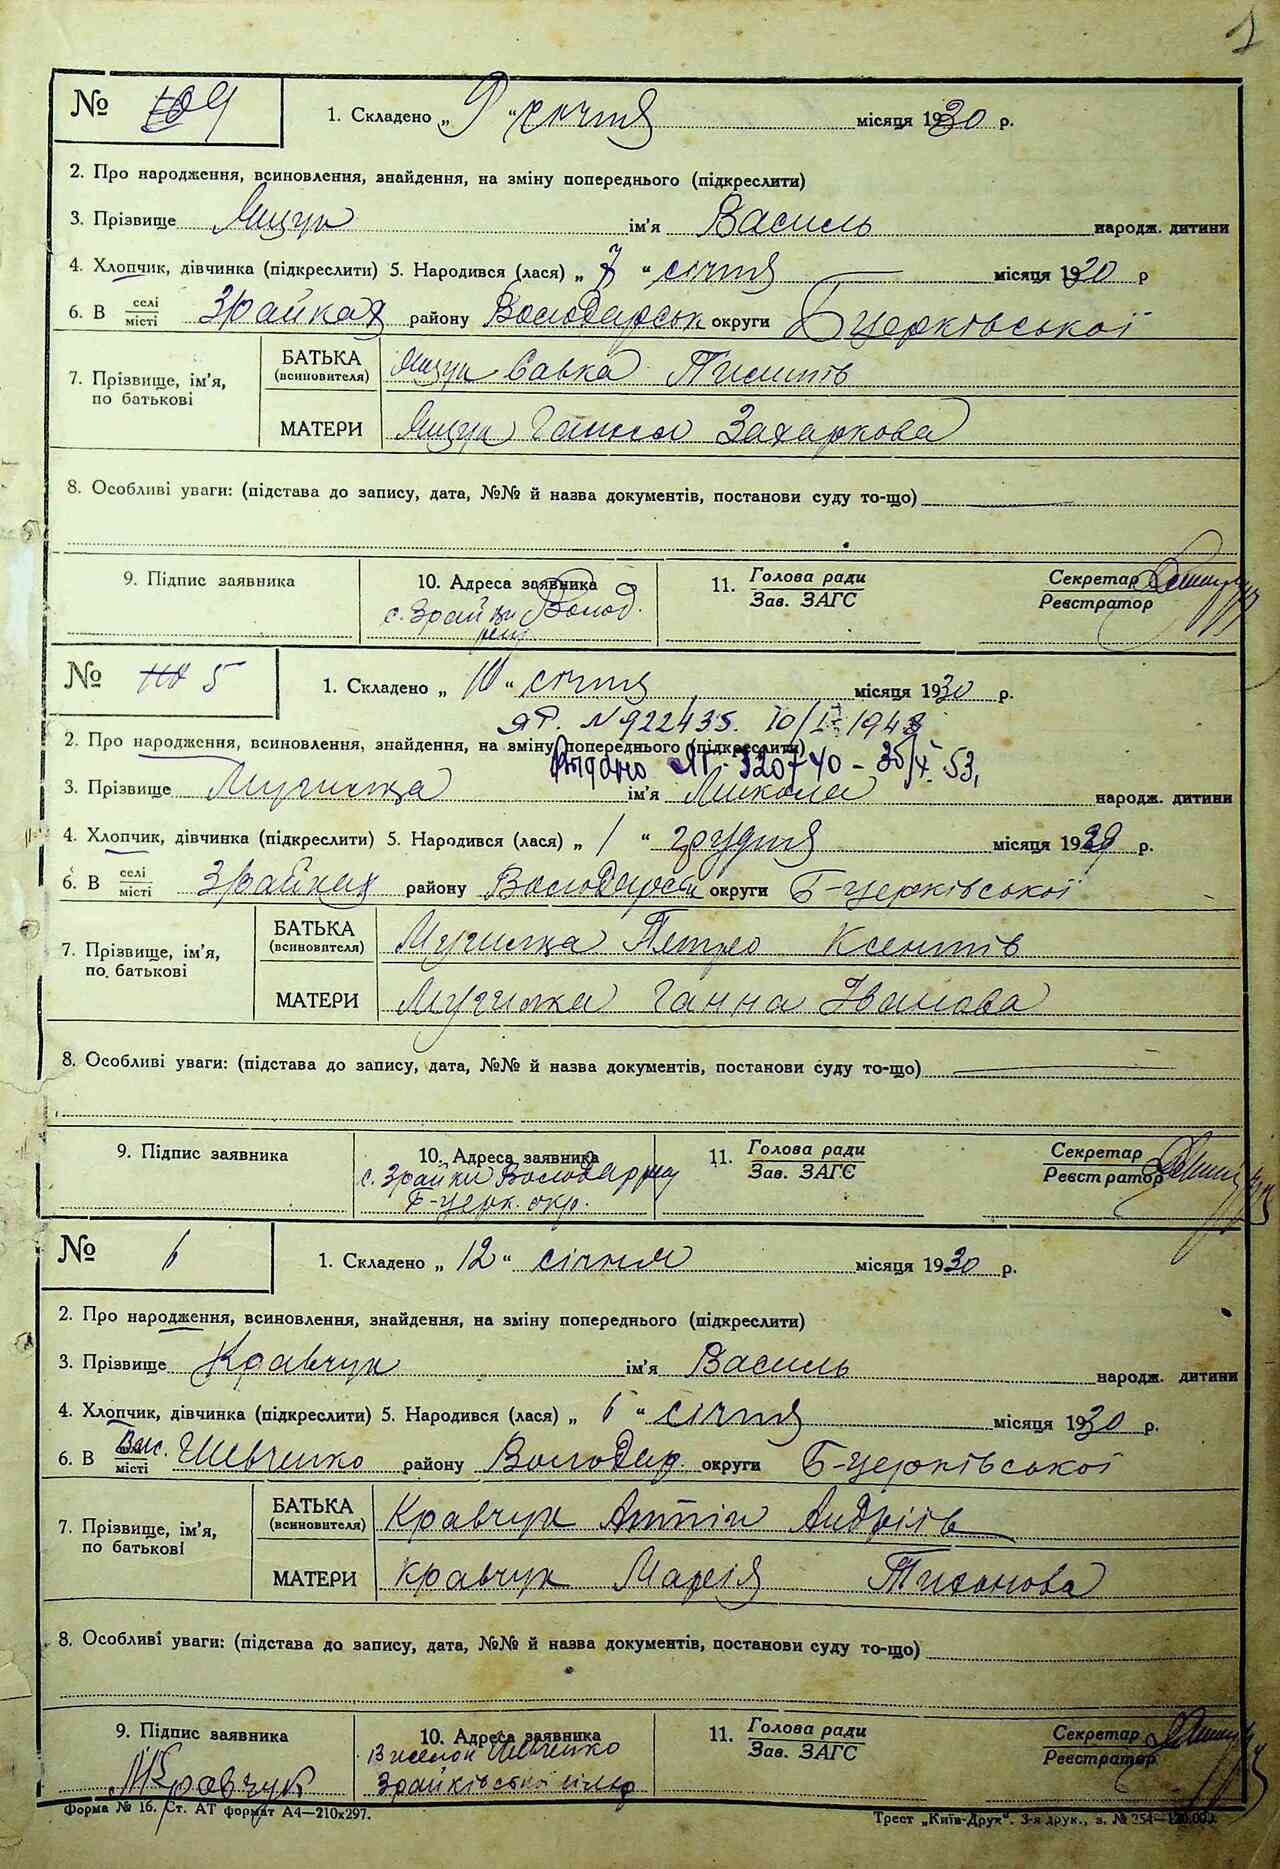 1
№ 4
1. Складено „9“ січня місяця 1930 р.
2. Про народження, всиновлення, знайдення, на зміну попереднього (підкреслити)
3. Прізвище Ящук ім'я Василь народж. дитини
4. Хлопчик, дівчинка (підкреслити) 5. Народився (лася) „7“ січня місяця 1930 р
6. В селі/місті Зрайках району Володарськ округи Бцерківської
7. Прізвище, ім'я, по батькові
БАТЬКА (всиновителя) Савка
МАТЕРИ Ганна Захаркова
8. Особливі уваги: (підстава до запису, дата, №№ й назва документів, постанови суду то-що)
9. Підпис заявника
10. Адреса заявника
с. Зрайки Волод.
11. Голова ради
Зав. ЗАГС
Секретар
Реєстратор
№ 5
1. Складено „10“ січня місяця 1930 р.
ЯР. N 922435. 10/
2. Про народження, всиновлення, знайдення, на зміну попереднього (підкреслити)
Видано 320740 - 53,
3. Прізвище ім'я Микола народж. дитини
4. Хлопчик, дівчинка (підкреслити) 5. Народився (лася) „1“ грудня місяця 1929 р.
6. В селі/місті Зрайках району округи Б-церківської
7. Прізвище, ім'я, по батькові
БАТЬКА (всиновителя) Петро
МАТЕРИ Ганна Іванова
8. Особливі уваги: (підстава до запису, дата, №№ й назва документів, постанови суду то-що)
9. Підпис заявника
10. Адреса заявника
с. Зрайки
Б-церк. окр.
11. Голова ради
Зав. ЗАГС
Секретар
Реєстратор
№ 6
1. Складено „12“ січня місяця 1930 р.
2. Про народження, всиновлення, знайдення, на зміну попереднього (підкреслити)
3. Прізвище Кравчук ім'я Василь народж. дитини
4. Хлопчик, дівчинка (підкреслити) 5. Народився (лася) „6“ січня місяця 1930 р.
6. В Вис. місті Шевченко району Володар. округи Б-церківської
7. Прізвище, ім'я, по батькові
БАТЬКА (всиновителя) Кравчук Антін Андріїв
МАТЕРИ Кравчук Марія Тиханова
8. Особливі уваги: (підстава до запису, дата, №№ й назва документів, постанови суду то-що)
9. Підпис заявника
МКравчук
10. Адреса заявника
Виселок Шевченко
Зрайківської
11. Голова ради
Зав. ЗАГС
Секретар
Реєстратор
Форма № 16. Ст. АТ формат А4—210х297.
Трест „Київ-Друк“. 3-я друк., з. №